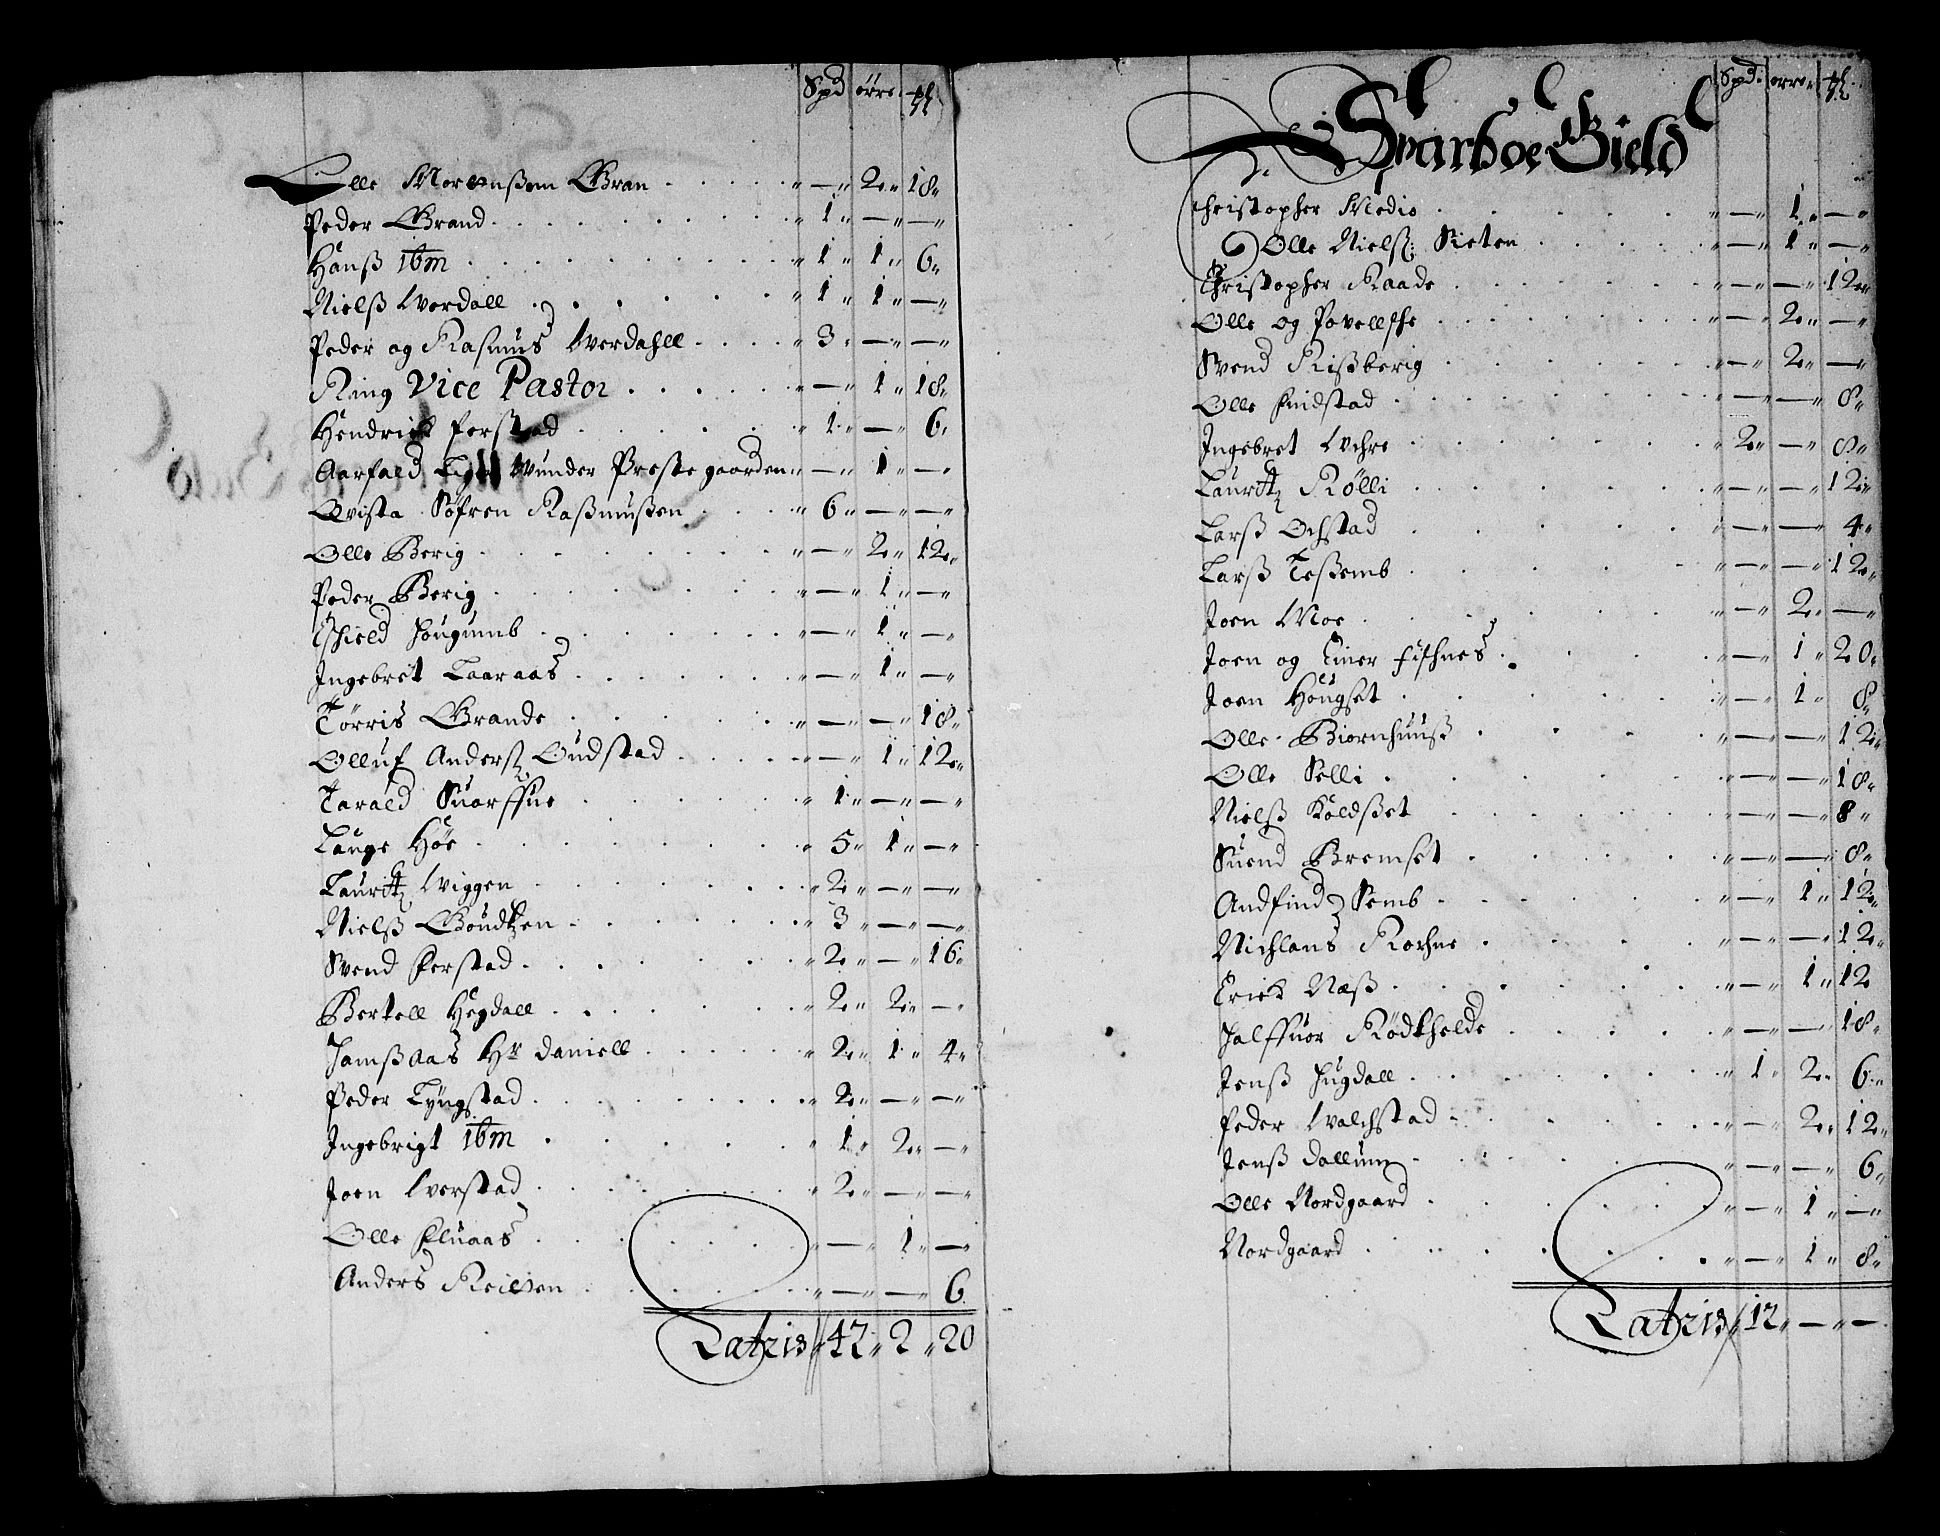 Spd ørre ℔
Olle Morenßøen Gran — 2 18
Peder Grand 1 — —
Hanß ibm 1 1 6
Nielß Werdall 1 1 —
Peder og Rasmus Werdahll 3 — —
Ring Vice Pastor — 1 18
Hendrick ferstad 1 — 6
Aarfald Wunder Prestegaarden — 1 —
Qvista Søfren Raßmußen 6 — —
Olle Berig — 2 12
Peder Berig — 1 —
Kield Hougumb — 1 —
Ingebret Laaraas — 1 —
Tørris Grande — — 18
Olluf Anderß Oudstad — 1 12
Tarald Suorffue 1 — —
Lauge Høe 5 1 —
Lauritz Wiggen 2 — —
Nielß Goudtzen 3 — —
Svend ferstad 2 — 16
Bertell Hegdall 2 2 —
Jamßaas Hr Daniell 2 1 4
Peder Lyngstad 2 — —
Ingebrigt ibm 1 2 —
Joen Werstad 2 — —
Olle Kluaas — 1 —
Anders Reitzen — — 6
Latris 42 2 20
Spd ørre ℔
Sparboe Gield
Christopher Medio — 1 —
Olle Nielß: Sieten — 1 —
Christopher Raade — — 12
Olle og Povellske — 2 —
Svend Rißberig — 2 —
Olle Knidstad — — 8
Ingebret Wchre 2 — 8
Lauritz Rølli — — 12
Larß Ochstad — — 4
Larß Teßemb — — 12
Joen Moe — 2 —
Joen og Einer Fischnes — 1 20
Joen Hougset — 1 8
Olle Biornhuuß — — 12
Olle Selli — — 18
Nielß Koldßet — — 8
Suend Bremset — — 8
Andfind Semb — 1 12
Nichlaus Rochne — — 12
Erick Næß — 1 12
Halffuor Rødkhelde — — 18
Jenß Hugdall 1 2 6
Peder Walchstad — 2 12
Jenß Dallum — — 6
Olle Nordgaard — 1 —
Nordgaard — 1 8
Latris 12 — —